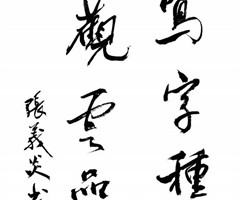 寫字種
觀雲品
張義炎书